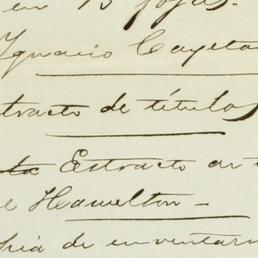 en 13 fojas.
Ignacio Cayeta
tracto de titulos
Estracto de
e Hamelton -
pia de inventar